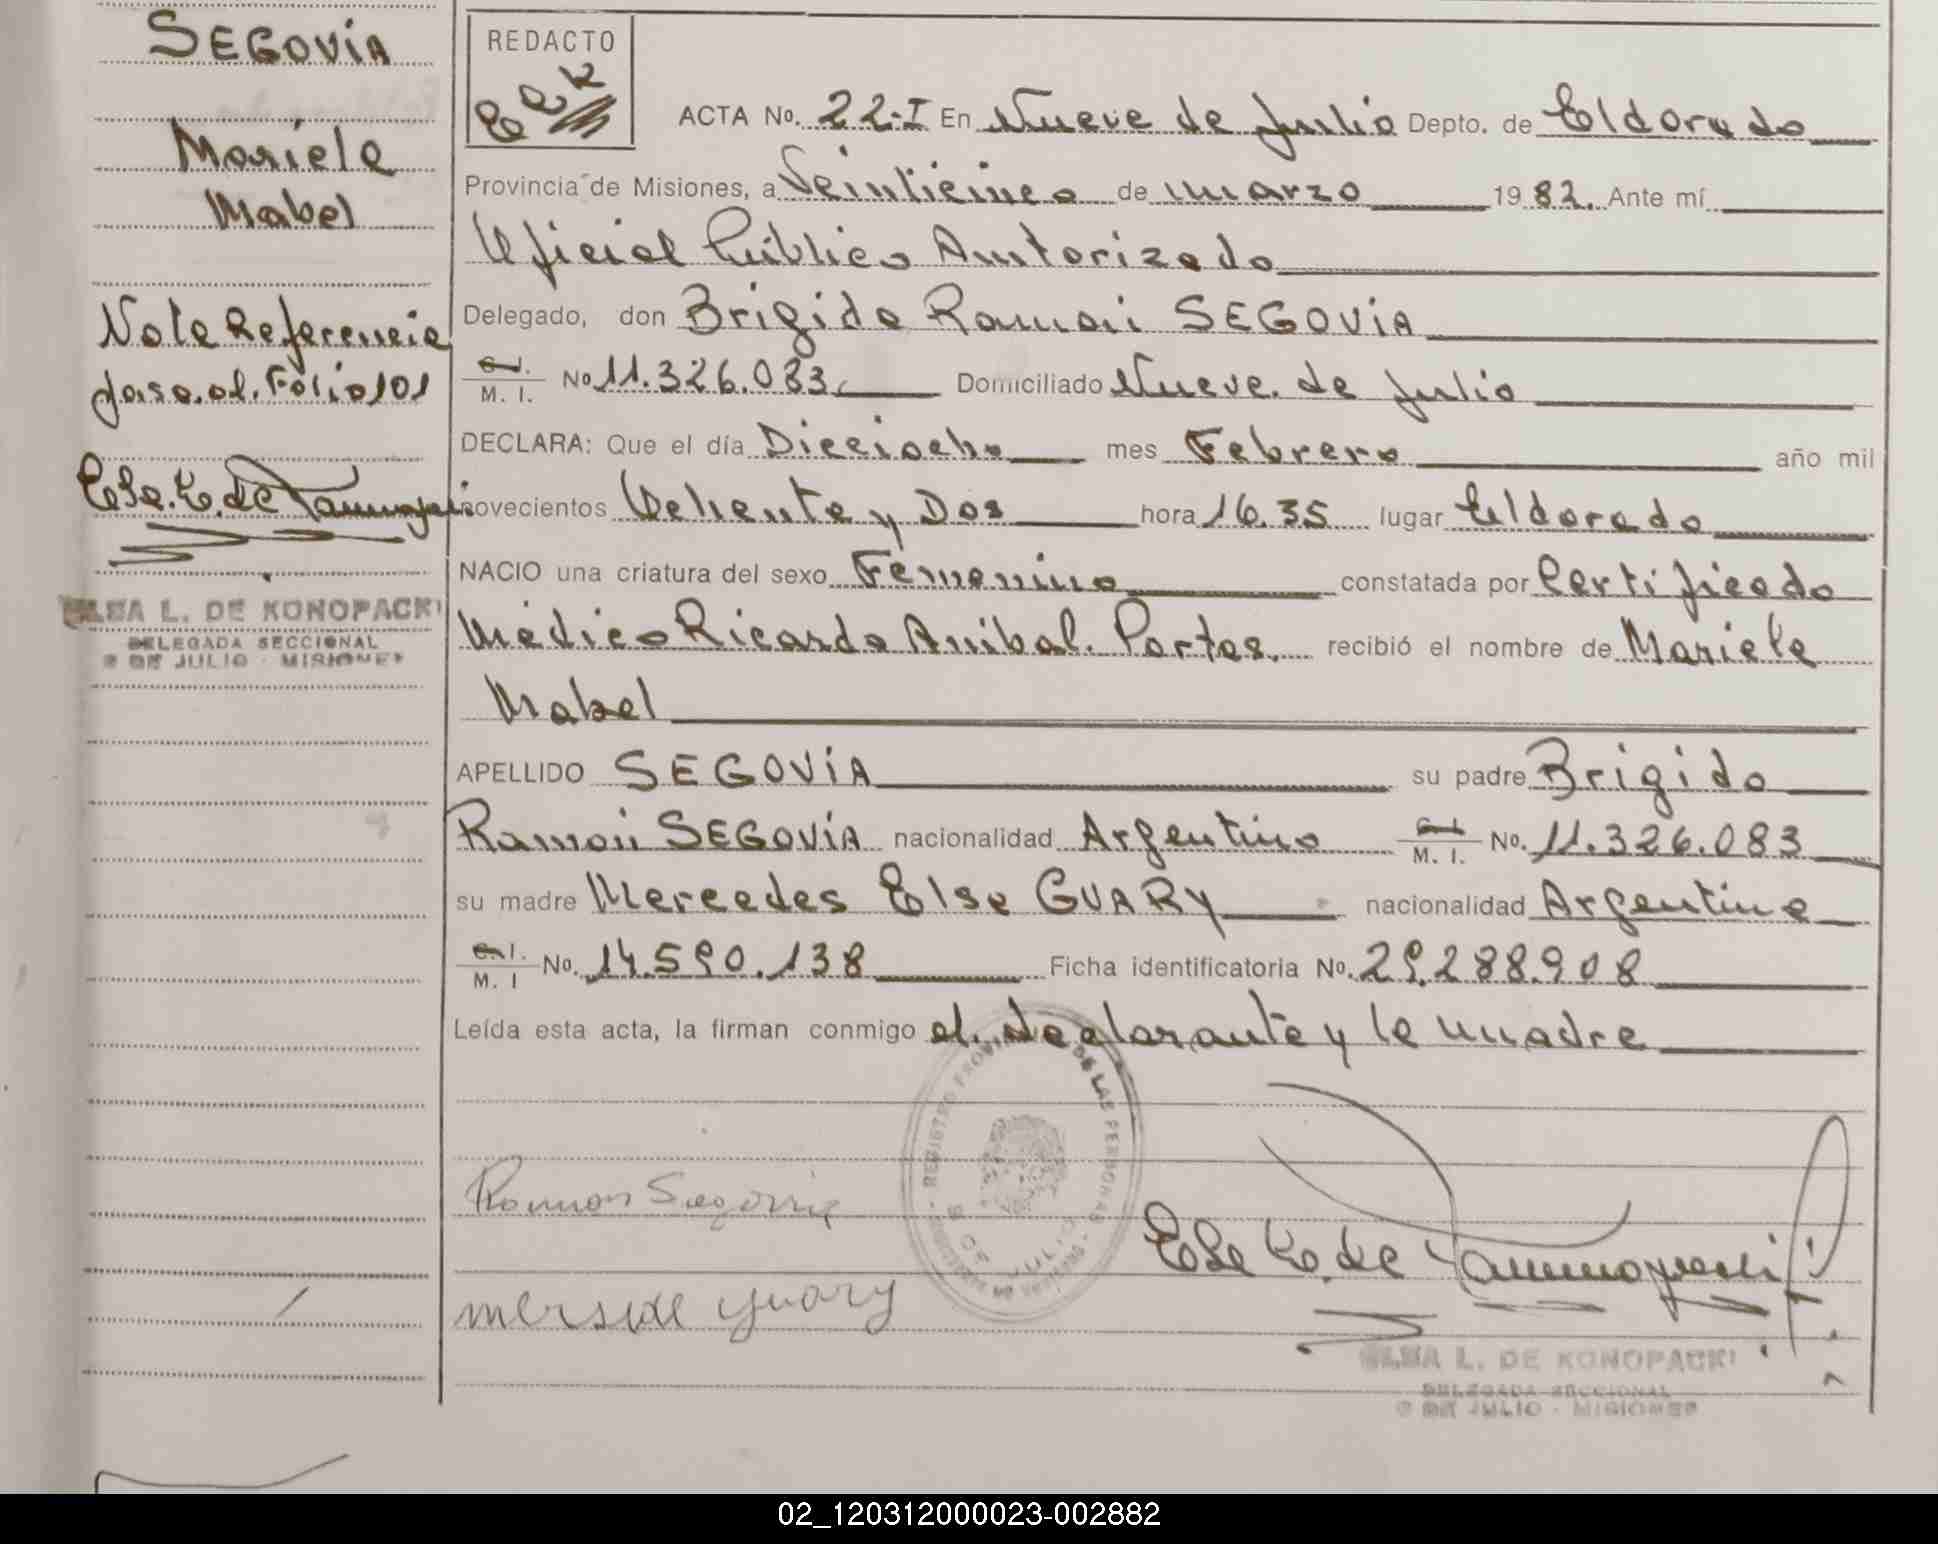 SEGOVIA
Mariela
Mabel
Nota Referencia
pasa al Folio 101
ELSA L. DE KONOPACKI
DELEGADA SECCIONAL
9 DE JULIO - MISIONES
REDACTO
ACTA No. 22-I En Nueve de Julio Depto. de Eldorado
Provincia de Misiones, a Veinticinco de marzo 1982. Ante mí
Oficial Público Autorizado
Delegado, don Brigido Ramón SEGOVIA
C. I. M. I. No 11.326.083 Domiciliado Nueve de Julio
DECLARA: Que el día Dieciocho mes Febrero año mil
novecientos Ochenta y Dos hora 16.35 lugar Eldorado
NACIO una criatura del sexo Femenino constatada por Certificado
Médico Ricardo Anibal Portas. recibió el nombre de Mariela
Mabel
APELLIDO SEGOVIA su padre Brigido
Ramón SEGOVIA nacionalidad Argentino C. I. M. I. No. 11.326.083
su madre Mercedes Elsa GUARY nacionalidad Argentina
C. I. M. I No. 14.590.138 Ficha identificatoria No. 29.288.908
Leída esta acta, la firman conmigo el declarante y la madre
REGISTRO PROVINCIAL DE LAS PERSONAS
9 DE JULIO
Ramon Segovia
mersede guary
ELSA L. DE KONOPACKI
DELEGADA SECCIONAL
9 DE JULIO - MISIONES
02_120312000023-002882